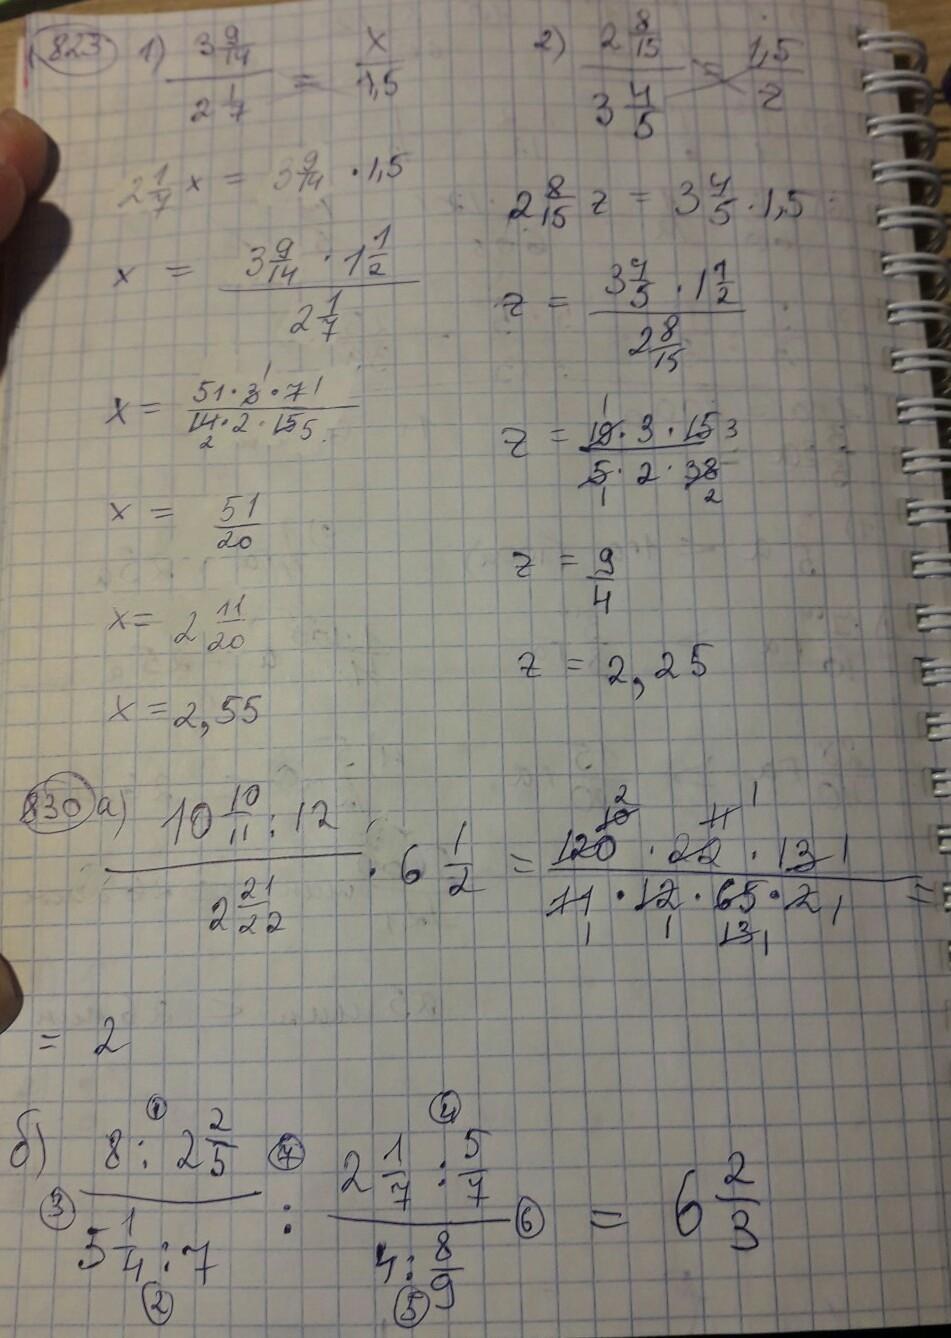 823 1) 3 9/14 / 2 1/7 = x / 1,5
2 1/7 x = 3 9/14 · 1,5
x = 3 9/14 · 1 1/2 / 2 1/7
x = 51 · 3 1 · 7 1 / 14 2 · 2 · 15 5
x = 51/20
x = 2 11/20
x = 2,55
2) 2 8/15 / 3 4/5 = 1,5 / z
2 8/15 z = 3 4/5 · 1,5
z = 3 4/5 · 1 1/2 / 2 8/15
z = 19 1 · 3 · 15 3 / 5 1 · 2 · 38 2
z = 9/4
z = 2,25
830 а) 10 10/11 : 12 / 2 21/22 · 6 1/2 = 120 10 2 · 22 11 1 · 13 1 / 11 1 · 12 1 · 65 13 1 · 2 1 =
= 2
б) 8 : 2 2/5 / 5 1/4 : 7 : 2 1/7 : 5/7 / 4 : 8/9 = 6 2/3